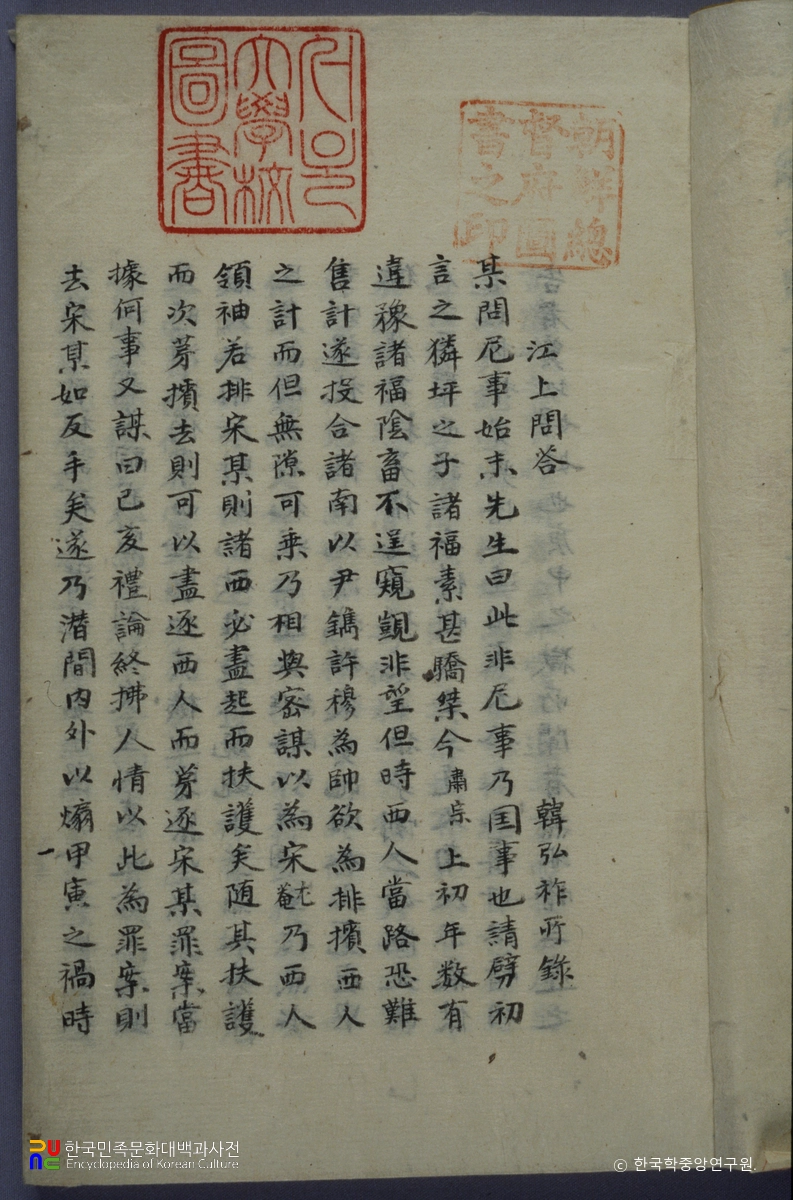 朝鮮總
督府圖
書之印
서울
大學校
圖書
江上問答
韓弘祚所錄
某問尼事始末先生曰此非尼事乃国事也請劈初
言之獜坪之子諸福素甚驕桀今肅宗上初年数有
違豫諸福陰畜不逞窺覬非望但時西人當路恐難
售計遂投合諸南以尹鑴許穆為帥欲為排擯西人
之計而但無隙可乗乃相與密謀以為宋尤菴乃西人
領袖若排宋某則諸西必盡起而扶護矣随其扶護
而次苐擯去則可以盡逐西人而苐逐宋某罪案當
據何事又謀曰己亥禮論終拂人情以此為罪案則
去宋某如反手矣遂乃潛間内外以煽甲寅之禍時
한국민족문화대백과사전
Encyclopedia of Korean Culture
© 한국학중앙연구원